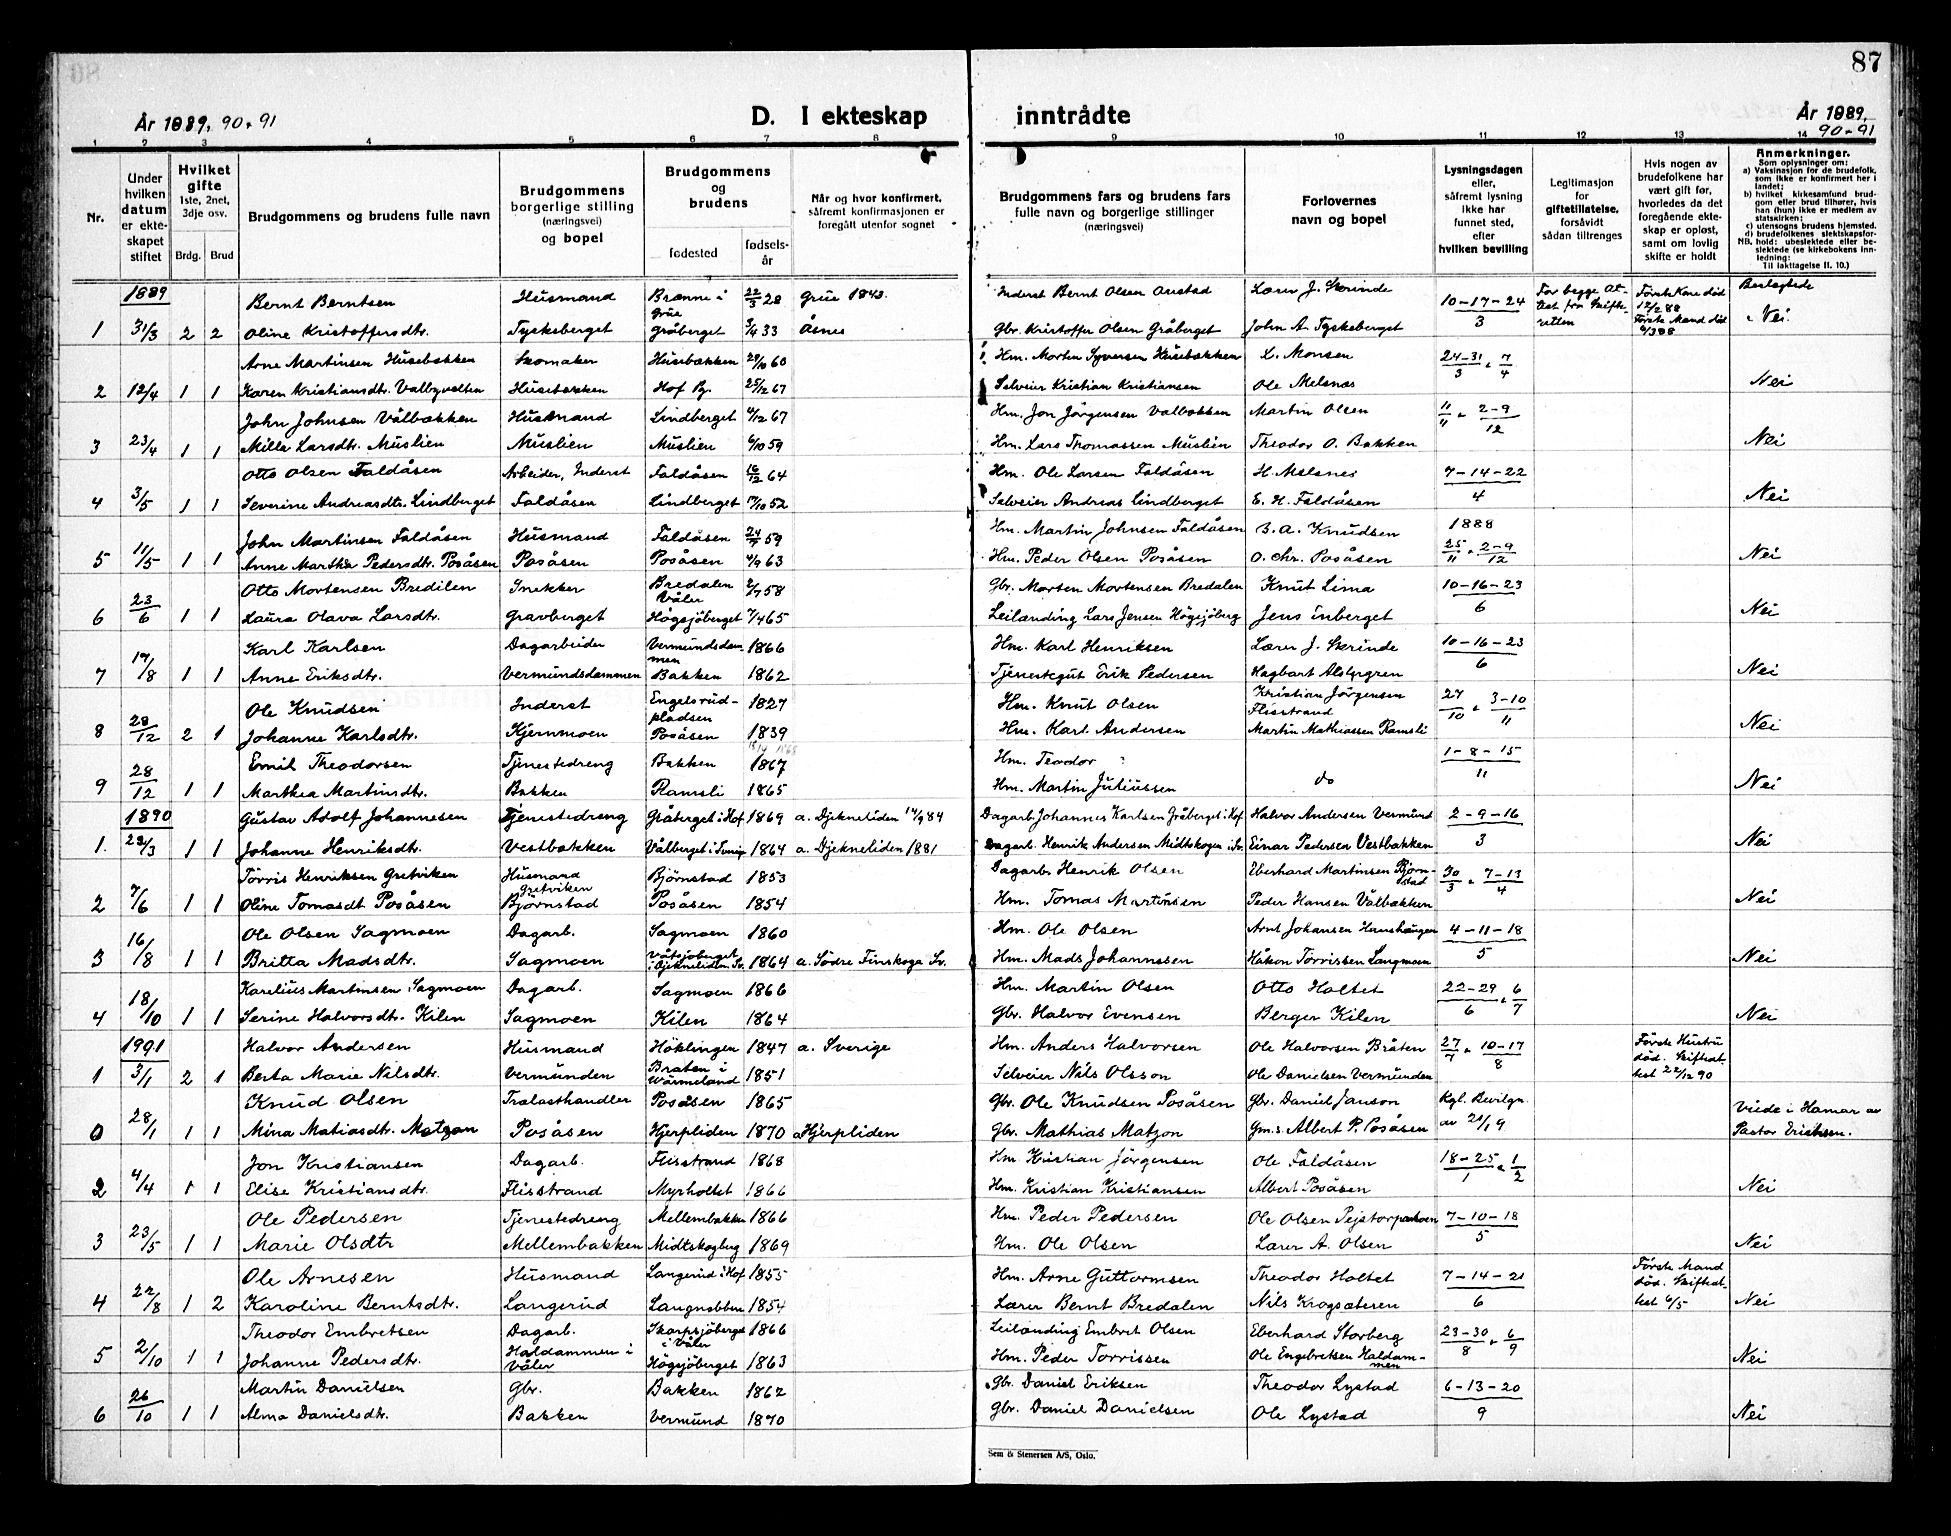 87
År 1889, 90-91
D. I ekteskap inntrådte
År 1889, 90-91
1 2 3 4 5 6 7 8 9 10 11 12 13 14
Nr.
Under hvilken datum er ekteskapet stiftet
Hvilket gifte 1ste, 2net, 3dje osv.
Brdg. Brud
Brudgommens og brudens fulle navn
Brudgommens borgerlige stilling (næringsvei) og bopel
Brudgommens og brudens
fødested
fødselsår
Når og hvor konfirmert, såfremt konfirmasjonen er foregått utenfor sognet
Brudgommens fars og brudens fars fulle navn og borgerlige stillinger (næringsvei)
Forlovernes navn og bopel
Lysningsdagen eller, såfremt lysning ikke har funnet sted, efter hvilken bevilling
Legitimasjon for giftetillatelse, forsåvidt sådan tiltrenges
Hvis nogen av brudefolkene har vært gift før, hvorledes da det foregående ekteskap er opløst, samt om lovlig skifte er holdt
Anmerkninger.
Som oplysninger om:
a) Vaksinasjon for de brudefolk, som ikke er konfirmert her i landet;
b) hvilket kirkesamfund brudgom eller brud tilhører, hvis han (hun) ikke er medlem av statskirken;
c) utensogns brudens hjemsted.
d) brudefolkenes slektskapsforhold: ubeslektede eller beslektede (se kirkebokens innledning:
NB.
Til iakttagelse II. 10.)
1889
Bernt Berntsen Husmand Brænne i Grue 22/3 28 Grue 1843. Inderst Bernt Olsen Onstad Lærer J. Skrinde 10-17-24/3 For begge Attest fra Skifteretten Første Kone død 12/2 88 Beslægtede
1 31/3 2 2 Oline Kristoffersdtr. Tyskeberget Gråberget 9/4 33 Åsnes Gbr. Kristoffer Olsen Gråberget John A. Tyskeberget Første Mand død 6/3 88 Nei.
Arne Martinsen Husebakken Skomaker Husebakken 29/10 60 Hm. Morten Syversen Husebakken L. Monsen 24-31/3, 7/4
2 12/4 1 1 Karen Kristiansdtr. Valbyvolten Husebakken Hof Pg. 25/12 67 Selveier Kristian Kristiansen Ole Melsnæs Nei
John Johnsen Välbækken Husmand Lindberget 4/12 67 Hm. Jon Jörgensen Valbækken Martin Olsen 11/11, 2-9/12
3 23/4 1 1 Mille Larsdtr. Muslien Muslien Muslien 6/10 59 Hm. Lars Thomassen Muslien Theodor O. Bakken Nei
Otto Olsen Faldåsen Arbeider, Inderst Faldåsen 16/12 64 Hm. Ole Larsen Faldåsen H. Melsnes 7-14-22/4
4 3/5 1 1 Severine Andreasdtr. Lindberget Faldåsen Lindberget 17/10 52 Selveier Andreas Lindberget E. H. Faldåsen Nei
John Martinsen Faldåsen Husmand Faldåsen 24/7 59 Hm. Martin Johnsen Faldåsen B. A. Knudsen 1888
5 11/5 1 1 Anne Marthea Pedersdtr. Posåsen Posåsen Posåsen 4/9 63 Hm. Peder Olsen Posåsen O. Chr. Posåsen 25/11, 2-9/12 Nei
Otto Mortensen Bredilen Snekker Bredalen Våler 2/7 58 Gbr. Morten Mortensen Bredalen Knut Lima 10-16-23/6
6 23/6 1 1 Laura Olava Larsdtr. Gravberget Högsjöberget 7/4 65 Leilending Lars Jensen Högsjöberg Jens Enberget Nei
Karl Karlsen Dagarbeider Vermundsdammen 1866 Hm. Karl Henriksen Lærer J. Skrinde 10-16-23/6
7 17/8 1 1 Anne Eriksdtr. Vermundsdammen Bakken 1862 Tjenestegut Erik Pedersen Hagbart Alstergren Nei
Ole Knudsen Inderst Engelsrudpladsen 1827 Hm. Knut Olsen Kristian Jörgensen Flisstrand 27/10, 3-10/11
8 28/12 2 1 Johanne Karlsdtr. Kjernmoen Posåsen 1839 Hm. Karl Andersen Martin Mathiassen Ramsli Nei
Emil Theodorsen Tjenestedreng Bakken 1867 Hm. Teodor ? 1-8-15/11
9 28/12 1 1 Marthea Martinsdtr. Bakken Ramsli 1865 Hm. Martin Juliussen do Nei
1890 Gustav Adolf Johannesen Tjenestedreng Gråberget i Hof 1869 a. Djekneliden 14/9 84 Dagarb. Johannes Karlsen Gråberget i Hof Halvor Andersen Vermund 2-9-16/3
1. 29/3 1 1 Johanne Henriksdtr. Vestbakken Vålberget i Sverige 1864 a. Djekneliden 1881 Dagarb. Henrik Andersen Midtskogen i Sv. Einar Pedersen Vestbakken Nei
Törris Henriksen Gretviken Husmand Gretviken Björnstad 1853 Dagarb. Henrik Olsen Eberhard Martinsen Björnstad 30/3, 7-13/4
2 7/6 1 1 Oline Tomasdt. Posåsen Björnstad Posåsen 1854 Hm. Tomas Martinsen Peder Hansen Välbækken Nei
Ole Olsen Sagmoen Dagarb. Sagmoen 1860 Hm. Ole Olsen Arnt Johansen Hanshaugen 4-11-18/5
3 16/8 1 1 Britta Madsdtr. Sagmoen Våtsjöberget i Djekneliden Sv. 1864 a. Södre Finskoga Sv. Hm. Mads Johannssen Håkon Törrissen Langmoen Nei
Karelius Martinsen Sagmoen Dagarb. Sagmoen 1866 Hm. Martin Olsen Otto Holtet 22-29/6, 6/7
4 18/10 1 1 Serine Halvorsdtr. Kilen Sagmoen Kilen 1864 Gbr. Halvor Evensen Berger Kilen Nei
1991 Halvor Andersen Husmand Höklingen 1847 a. Sverige Hm. Anders Halvorsen Ole Halvorsen Bråten 27/7, 10-17/8 Første Hustru död. Skifteattest 22/12 90
1 3/1 2 1 Berta Marie Nilsdtr. Vermunden Braten i Wärmeland 1851 Selveier Nils Olsson Ole Danielsen Vermunden
Knud Olsen Trælasthandler Posåsen 1865 Gbr. Ole Knudsen Posåsen Gbr. Daniel Janson Kgl. Bevilgn. Viede i Hamar av
0 28/1 1 1 Mina Matiasdtr. Matzon Posåsen Hjerpliden 1870 a Hjerpliden Gbr. Mathias Matzon Gm.s. Albert P. Posåsen av 21/1 9 Pastor Erichsen.
Jon Kristiansen Dagarb. Flisstrand 1868 Hm. Kristian Jörgensen Ole Faldåsen 18-25/1, 1/2
2 4/4 1 1 Elise Kristiansdtr. Flisstrand Myrholtet 1866 Hm. Kristian Kristiansen Albert Posåsen Nei
Ole Pedersen Tjenestedreng Mellembakken 1866 Hm. Peder Pedersen Ole Olsen Peistorpmoen 7-10-18/5
3 23/5 1 1 Marie Olsdtr Mellembakken Midtskogberg 1869 Hm. Ole Olsen Lærer A. Olsen Nei
Ole Arnesen Husmand Langerud i Hof 1855 Hm. Arne Guttormsen Theodor Holtet 7-14-21/6 Første Mand död. Skifteattest 6/5
4 22/8 1 2 Karoline Berntsdtr. Langerud Langnebben 1854 Lærer Bernt Bredalen Nils Krogsæteren Nei
Theodor Embretsen Dagarb. Skarpsjöberget i Våler 1866 Leilending Embret Olsen Eberhard Storberg 23-30/8, 6/9
5 2/10 1 1 Johanne Pedersdtr. Haldammen i Våler Högsjöberget 1863 Hm. Peder Torrissen Ole Engebretsen Haldammen Nei
Martin Danielsen Gbr. Bakken 1862 Gbr. Daniel Eriksen Theodor Lystad 6-13-20/9
6 26/10 1 1 Alma Danielsdtr. Bakken Vermund 1870 Gbr. Daniel Danielsen Ole Lystad Nei
Sem & Stenersen A/S, Oslo.